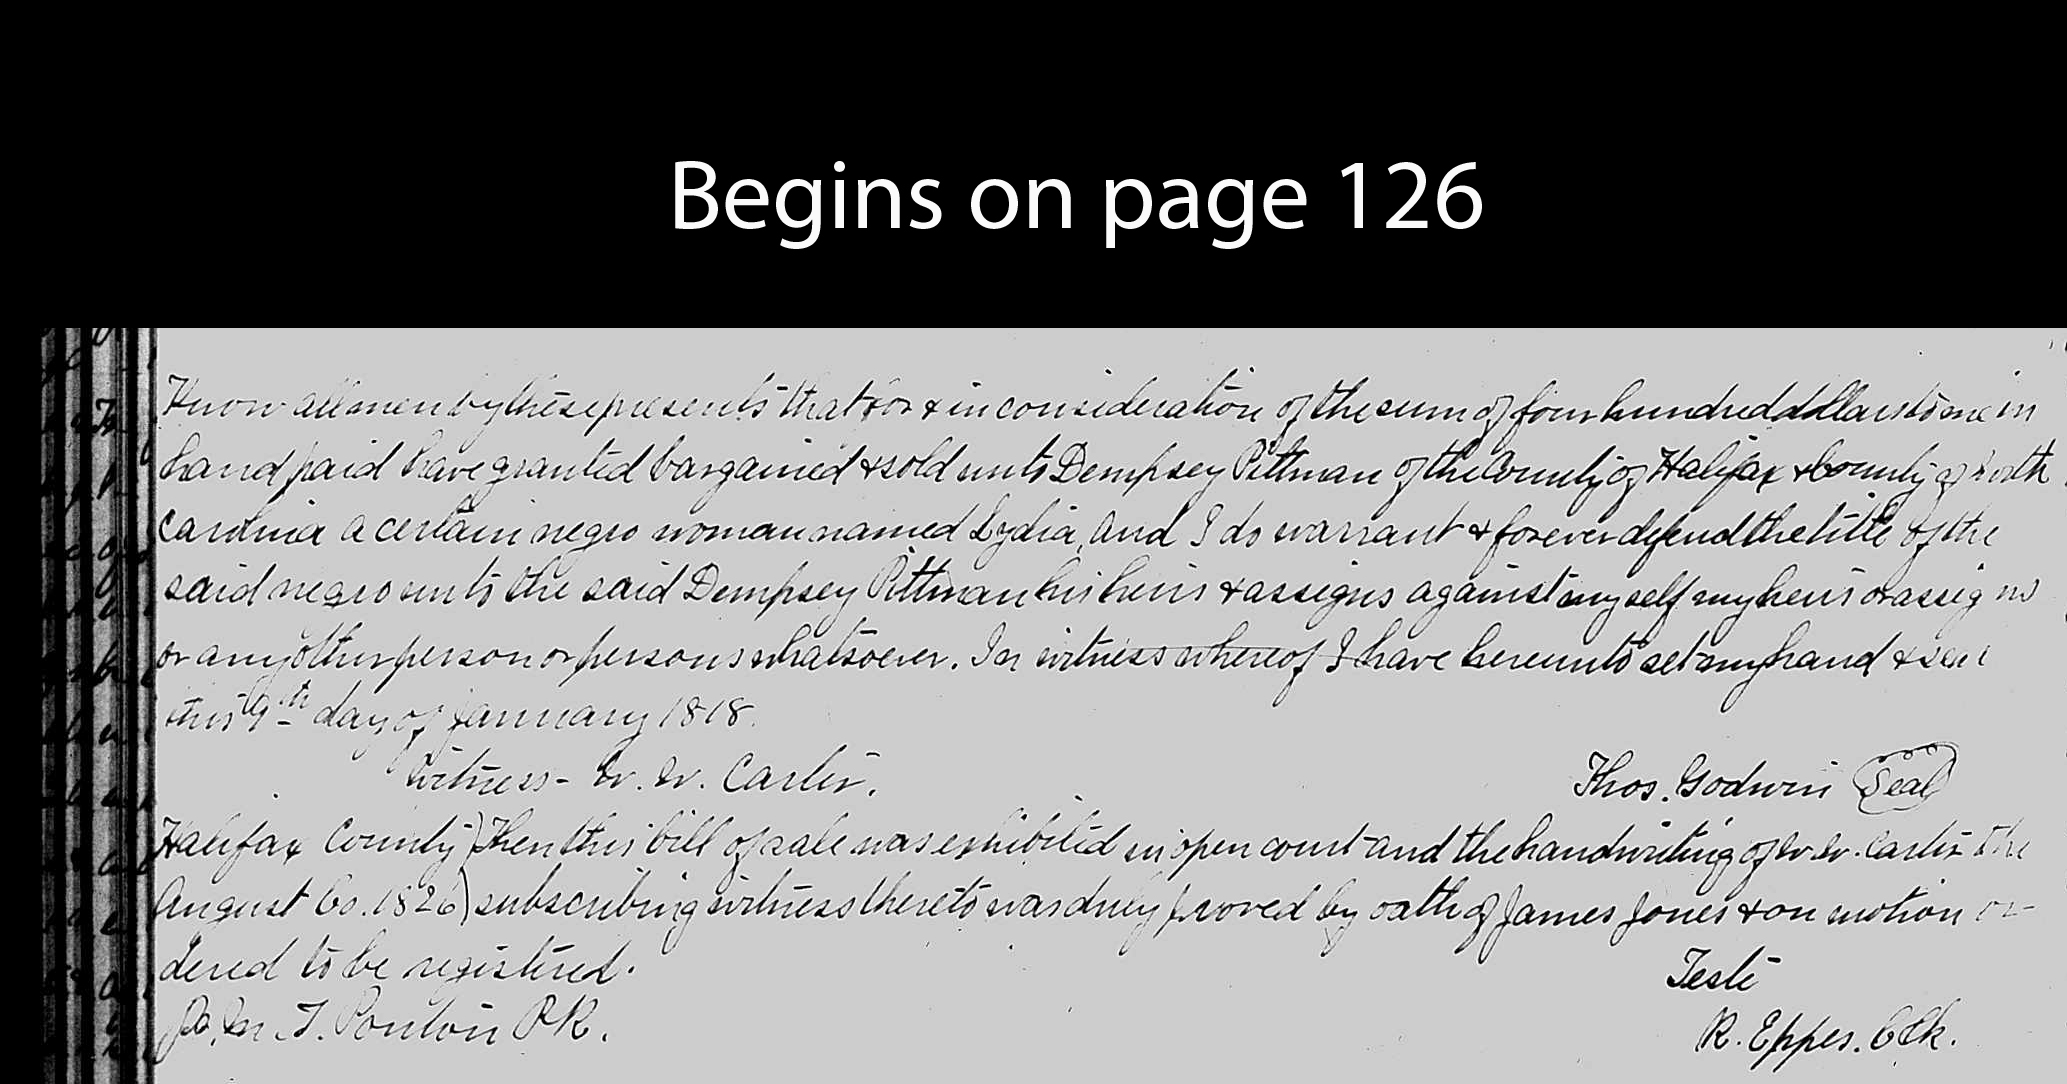 Begins on page 126
Know all men by these presents that for & in consideration of the sum of four hundred dollars to me in
hand paid have granted bargained & sold unto Dempsey Pittman of the County of Halifax & County of North
Carolina a certain negro woman named Lydia, and I do warrant & forever defend the title of the
said negro unto the said Dempsey Pittman his heirs & assigns against myself my heirs or assigns
or any other person or persons whatsoever. In witness whereof I have hereunto set my hand & seal
this 9th day of January 1818.
Witness - W. W. Carter.
Thos. Godwin Seal
Halifax County) Then this bill of sale was exhibited in open court and the handwriting of W. W. Carter the
August Co. 1826) subscribing witness thereto was duly proved by oath of James Jones & on motion or-
dered to be registered.
Teste
T. Pouton P.R.
R. Eppes. Clk.